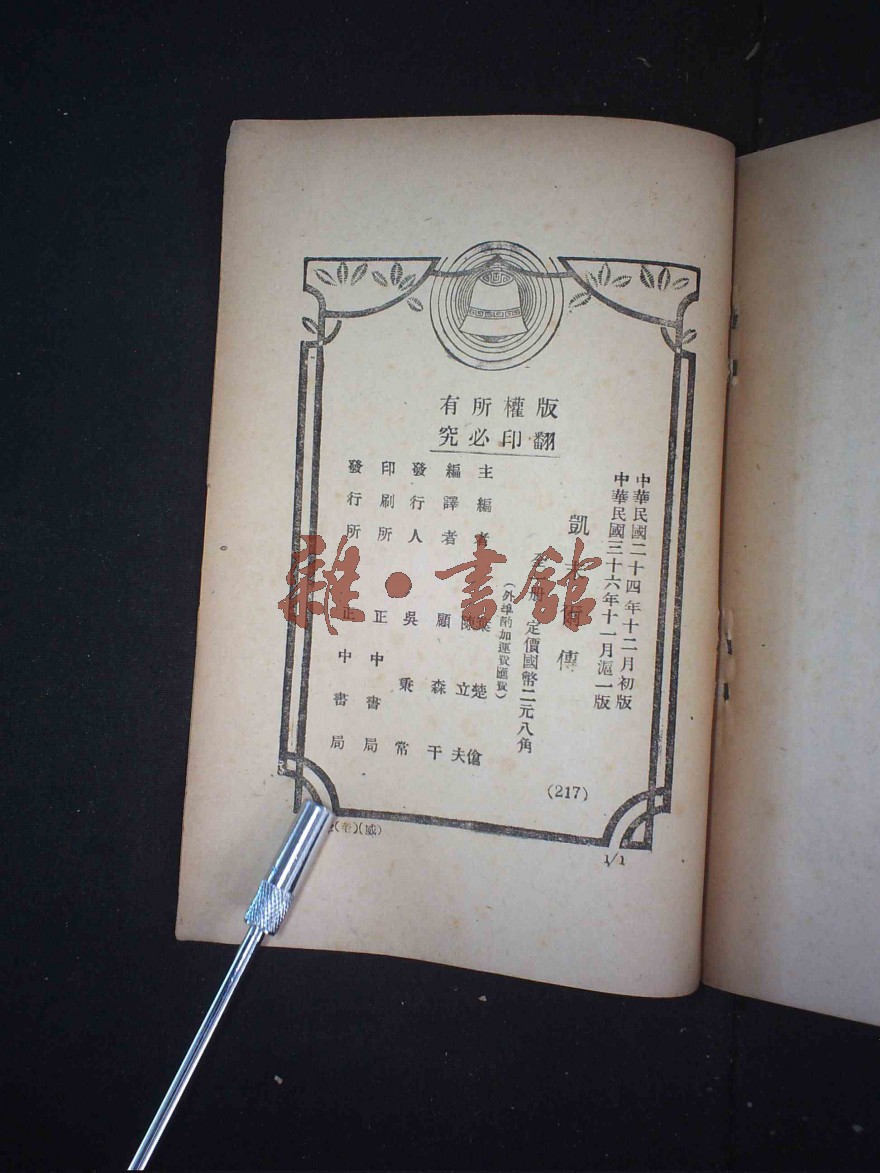 版權所有
翻印必究
中華民國二十四年十二月初版
中華民國三十六年十一月滬一版
凱末爾傳
全一册 定價國幣二元八角
(外埠酌加運費匯費)
主編者 葉楚傖 陳立夫
編譯者 顧森干
發行人 吳秉常
印刷所 正中書局
發行所 正中書局
(217)
1/1
雜·書館